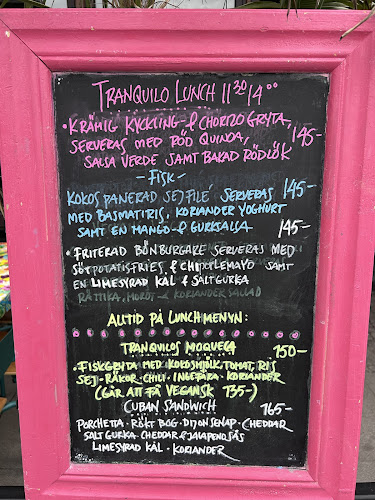 TRANQUILO LUNCH 11³⁰/14⁰⁰
• KRÄMIG KYCKLING- & CHORIZOGRYTA,
SERVERAS MED RÖD QUINOA, 145-
SALSA VERDE SAMT BAKAD RÖDLÖK
- FISK -
KOKOSPANERAD SEJFILÉ SERVERAS 145-
MED BASMATIRIS, KORIANDER YOGHURT
SAMT EN MANGO- & GURKSALSA 145-
• FRITERAD BÖNBURGARE SERVERAS MED
SÖTPOTATISFRIES, & CHIPOTLEMAYO SAMT
EN LIMESYRAD KÅL & SALTGURKA
RÄTTIKA, MOROT- & KORIANDER SALLAD
ALLTID PÅ LUNCHMENYN:
TRANQUILOS MOQUECA 150-
• FISKGRYTA MED KOKOSMJÖLK, TOMAT, RIS
SEJ - RÄKOR - CHILI - INGEFÄRA - KORIANDER
(GÅR ATT FÅ VEGANSK 135-)
CUBAN SANDWICH 165-
PORCHETTA - RÖKT BOG - DIJONSENAP - CHEDDAR
SALTGURKA - CHEDDAR & JALAPENOSÅS
LIMESYRAD KÅL - KORIANDER